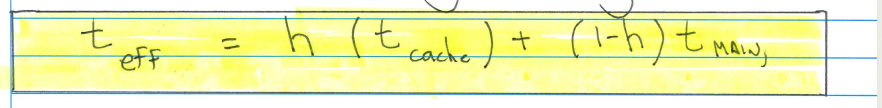 t eff = h (t cache) + (1-h) t MAIN,